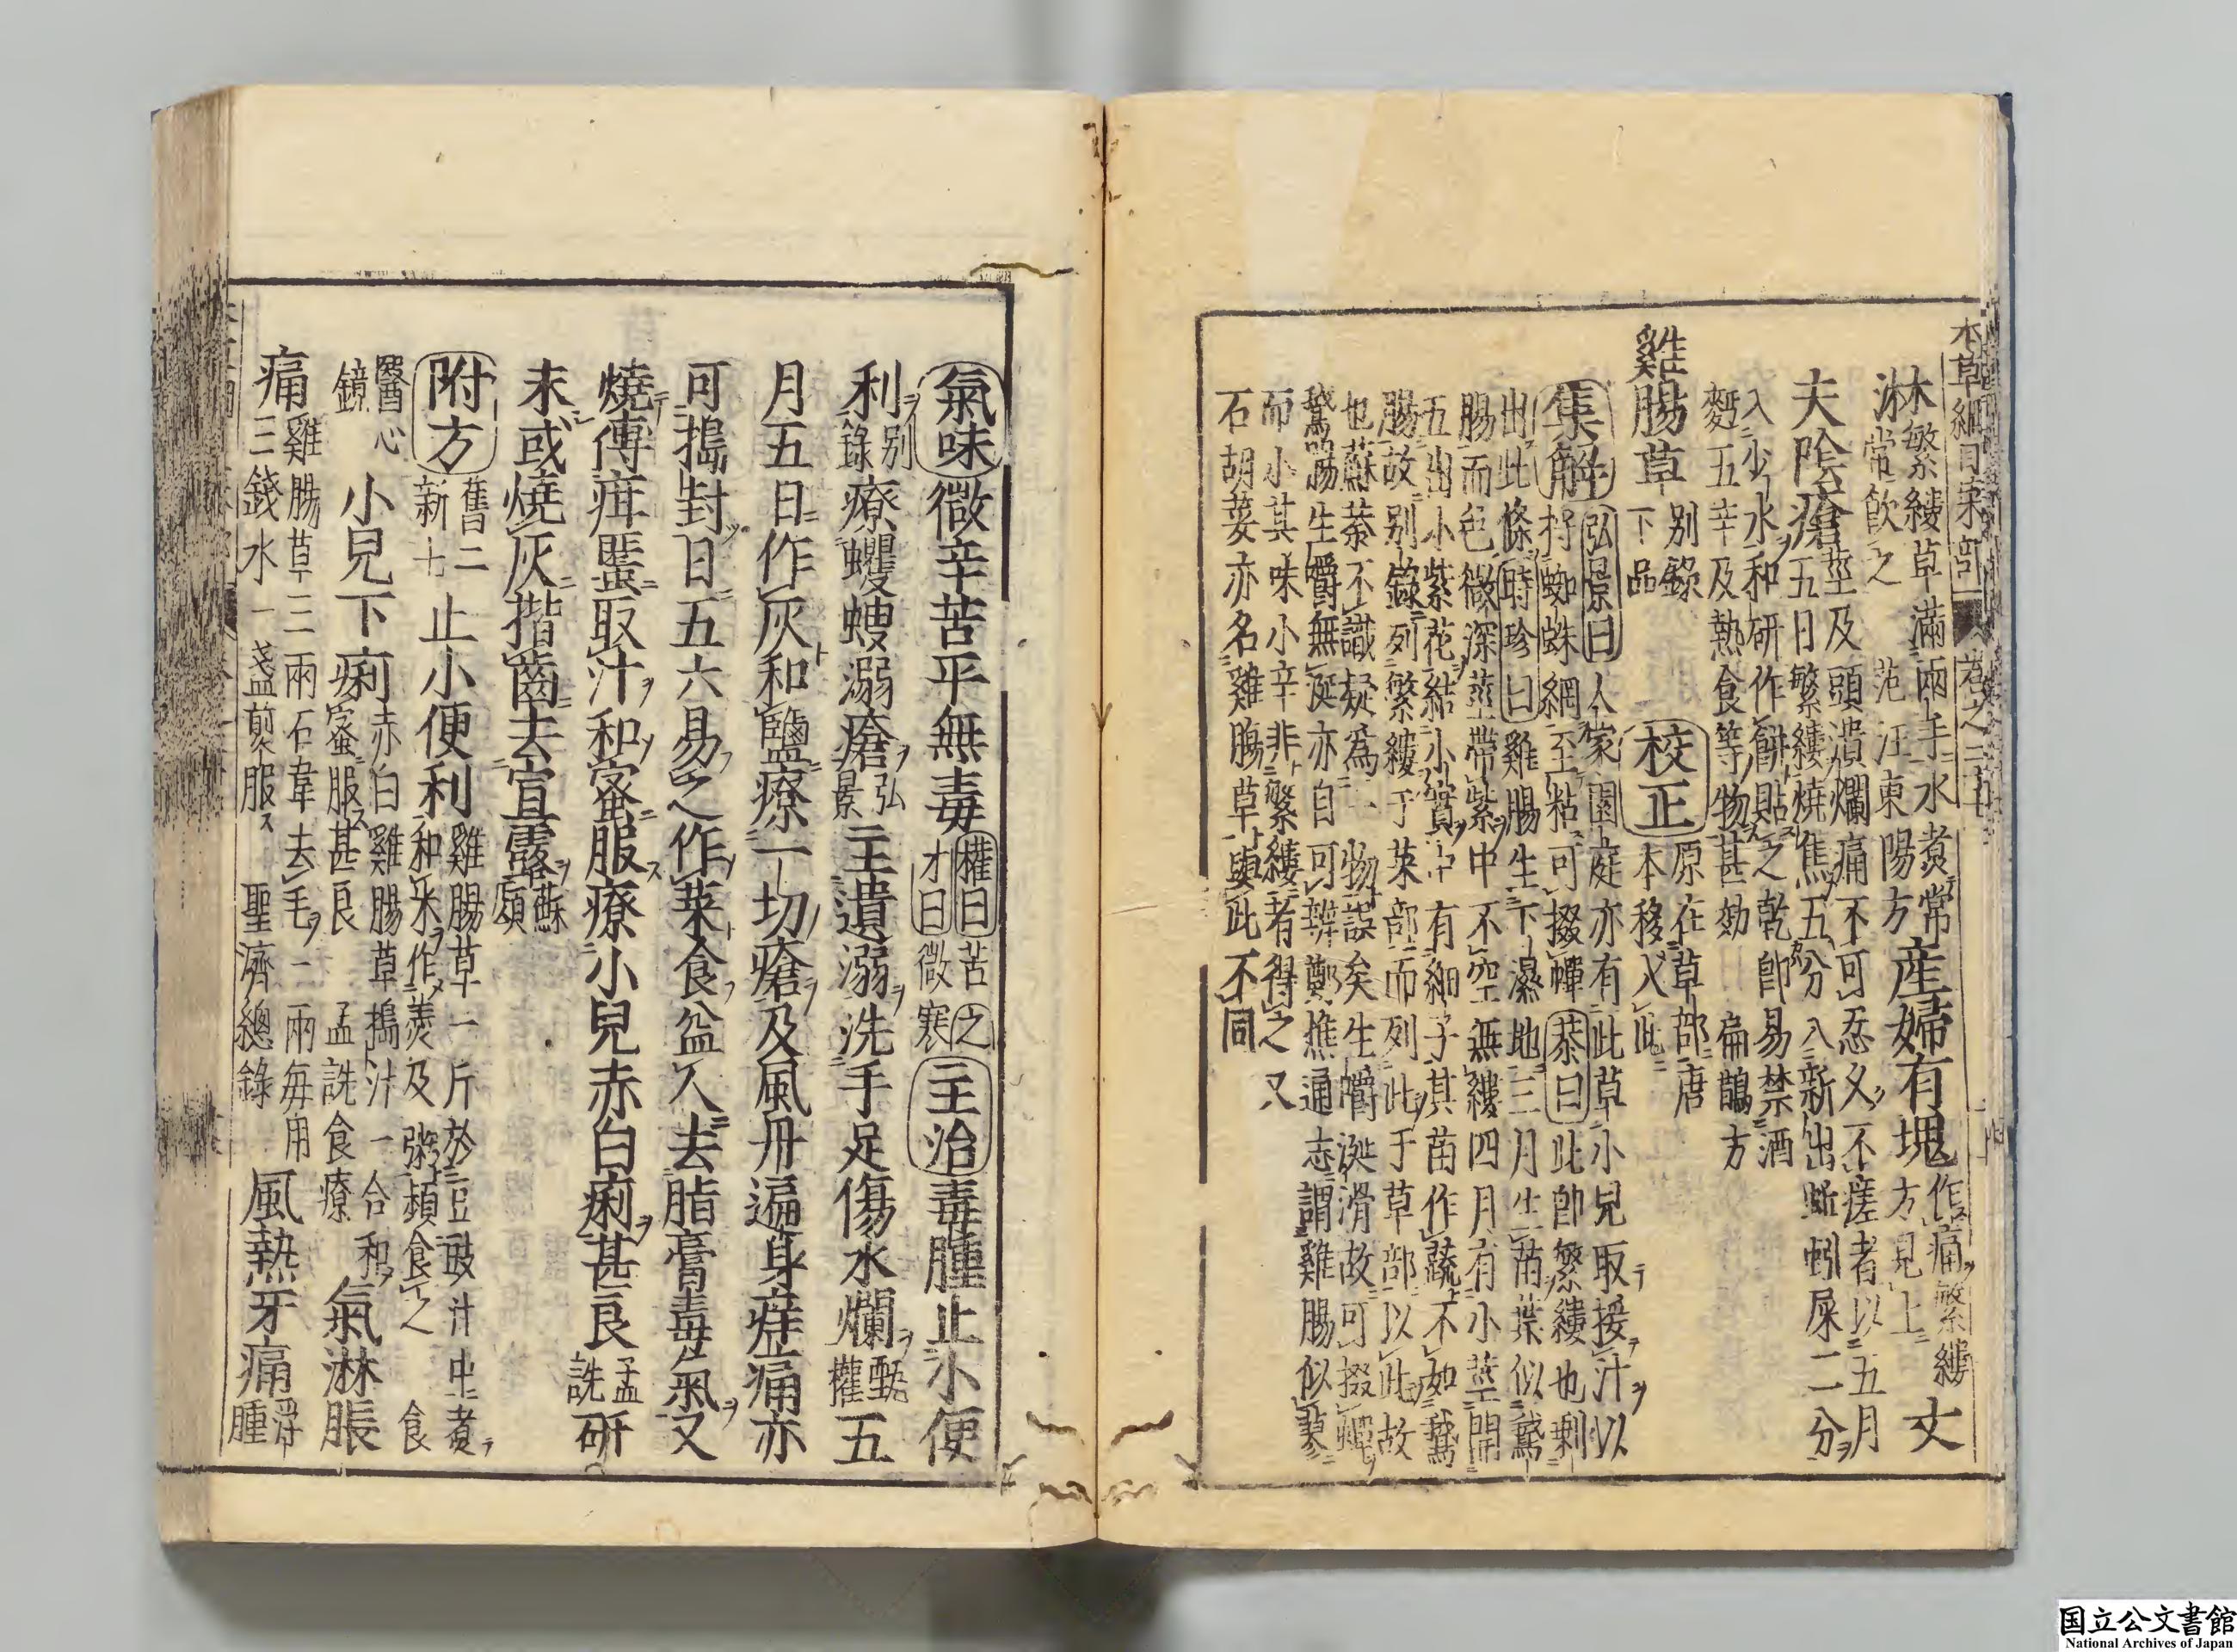 本草綱目菜部 卷之二十七
淋 繁縷草滿兩手水煮常
常飲之 范汪東陽方 產婦有塊 作痛繁縷
方見上 丈
夫陰瘡 莖及頭潰爛痛不可忍久不瘥者以五月
五日繁縷燒焦五分入新出蚯蚓屎二分
入少水和研作餅貼之乾即易禁酒
麪五辛及熱食等物甚効 扁鵲方
雞腸草 別錄
下品 校正 原在草部唐
本移入此
集解 弘景曰人家園庭亦有此草小兒取挼汁以
捋蜘蛛網至粘可掇蟬恭曰此即繁縷也剩
出此條時珍曰雞腸生下濕地三月生苗葉似鵝
腸而色微深莖帶紫中不空無縷四月有小莖開
五出小紫花結小實中有細子其苗作蔬不如鵝
腸故別錄列繁縷于菜部而列此于草部以此故
也蘇恭不識疑爲一物誤矣生嚼涎滑故可掇蟬
鵝腸生嚼無涎亦自可辨鄭樵通志謂雞腸似蓼
而小其味小辛非繁縷者得之又
石胡荽亦名雞腸草與此不同
氣味微辛苦平無毒 權曰苦之
才曰微寒 主治毒腫止小便
利 別
錄 療蠼螋溺瘡 弘
景 主遺溺洗手足傷水爛 甄
權 五
月五日作灰和鹽療一切瘡及風丹遍身痒痛亦
可搗封日五六易之作菜食益人去脂膏毒氣又
燒傅疳䘌取汁和蜜服療小兒赤白痢甚良 孟
詵 研
末或燒灰揩齒去宣露 蘇
頌
附方 舊二
新七 止小便利 雞腸草一斤於豆豉汁中煮
和米作羹及粥頻食之 食
醫心
鏡 小兒下痢 赤白雞腸草搗汁一合和
蜜服甚良 孟詵食療 氣淋脹
痛 雞腸草三兩石韋去毛一兩每用
三錢水一盞煎服 聖濟總錄 風熱牙痛 浮
腫
国立公文書館
National Archives of Japan